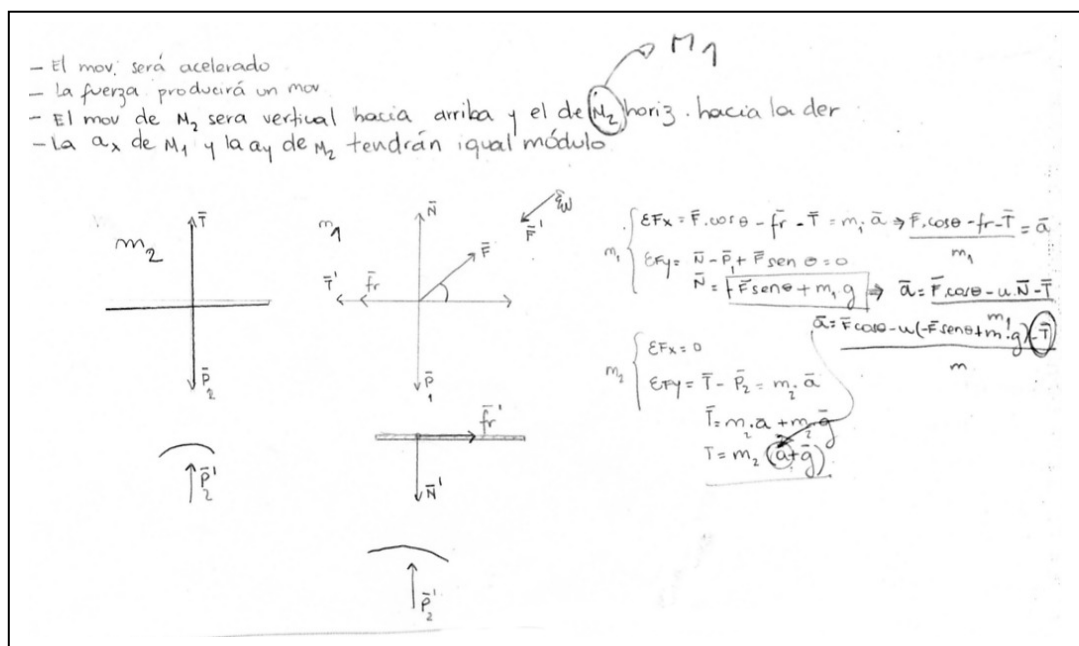 M1
- El mov. será acelerado
- La fuerza producirá un mov
- El mov de M2 sera vertical hacia arriba y el de M2 horiz. hacia la der
- La ax de M1 y la ay de M2 tendrán igual módulo
m2
T̄
P̄2
P̄2'
m1
N̄
F̄
T̄'
f̄r
P̄1
F̄'
f̄r'
N̄'
P̄2'
m1 { ΣFx = F̄.cosθ - f̄r - T̄ = m1.ā ⇒ F̄.cosθ - fr - T̄ / m1 = ā
ΣFy = N̄ - P̄1 + F̄ sen θ = 0
N̄ = -F̄ senθ + m1 g ⇒ ā = F̄.cosθ - u.N̄ - T̄ / m1
ā = F̄ cosθ - u(-F̄ senθ + m1.g) - T̄ / m
m2 { ΣFx = 0
ΣFy = T̄ - P̄2 = m2.ā
T̄ = m2.a + m2.ḡ
T = m2 (ā + ḡ)